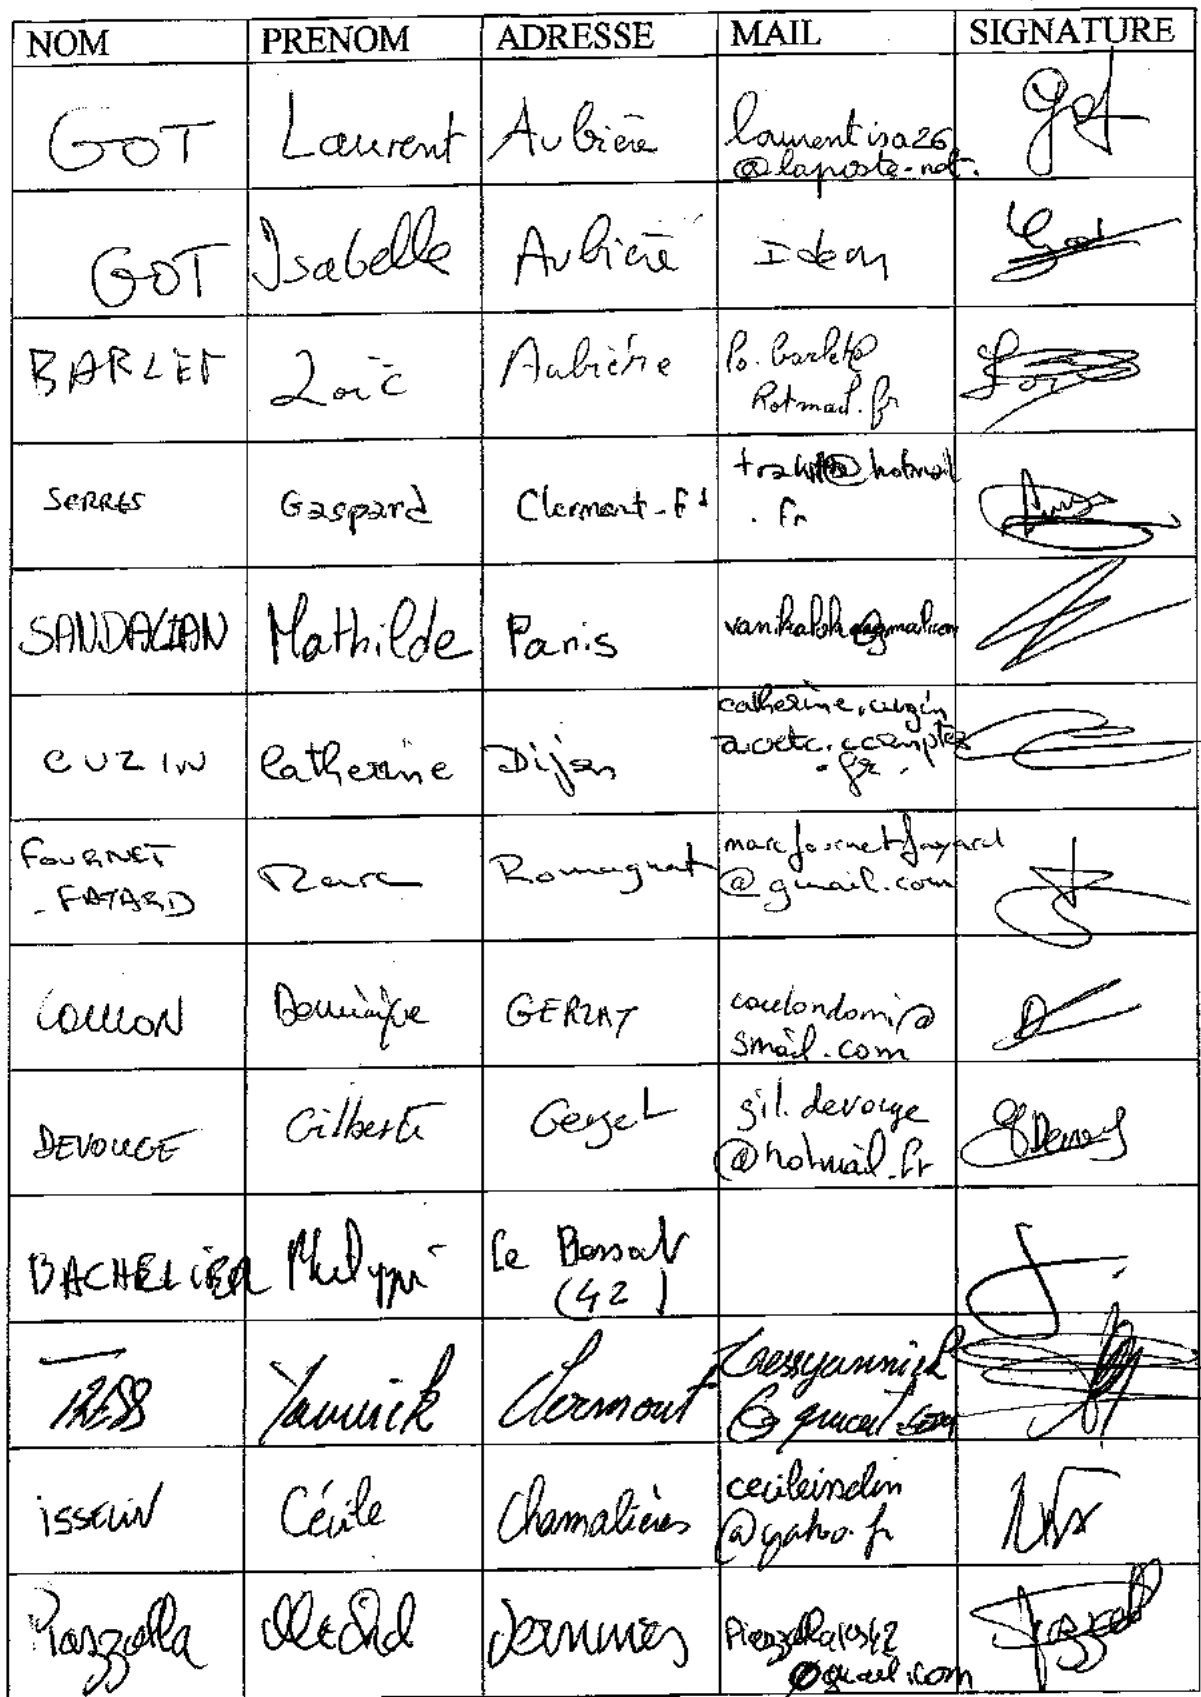 NOM PRENOM ADRESSE MAIL SIGNATURE
GOT Laurent Aubière laurentisa26 Got
@laposte.net.
GOT Isabelle Aubière Idem Got
BARLET Loïc Aubière lo.barlet@
hotmail.fr
SERRES Gaspard Clermont-Fd @hotmail
.fr
SANDALIAN Mathilde Paris @gmail.com
CUZIN Catherine Dijon catherine.cuzin
.fr.
FOURNET Marc Romagnat marcfournetfayard
-FAYARD @gmail.com
COULON Dominique GERZAT coulondomi@
gmail.com
DEVOUGE Gilberte Gerzat gil.devouge
@hotmail.fr
BACHELIER Philippe Le Bessat
(42)
TRESS Yannick Clermont tressyannick
@gmail.com
ISSELIN Cécile Chamalières cecileisselin
@yahoo.fr
Piazzolla
@gmail.com